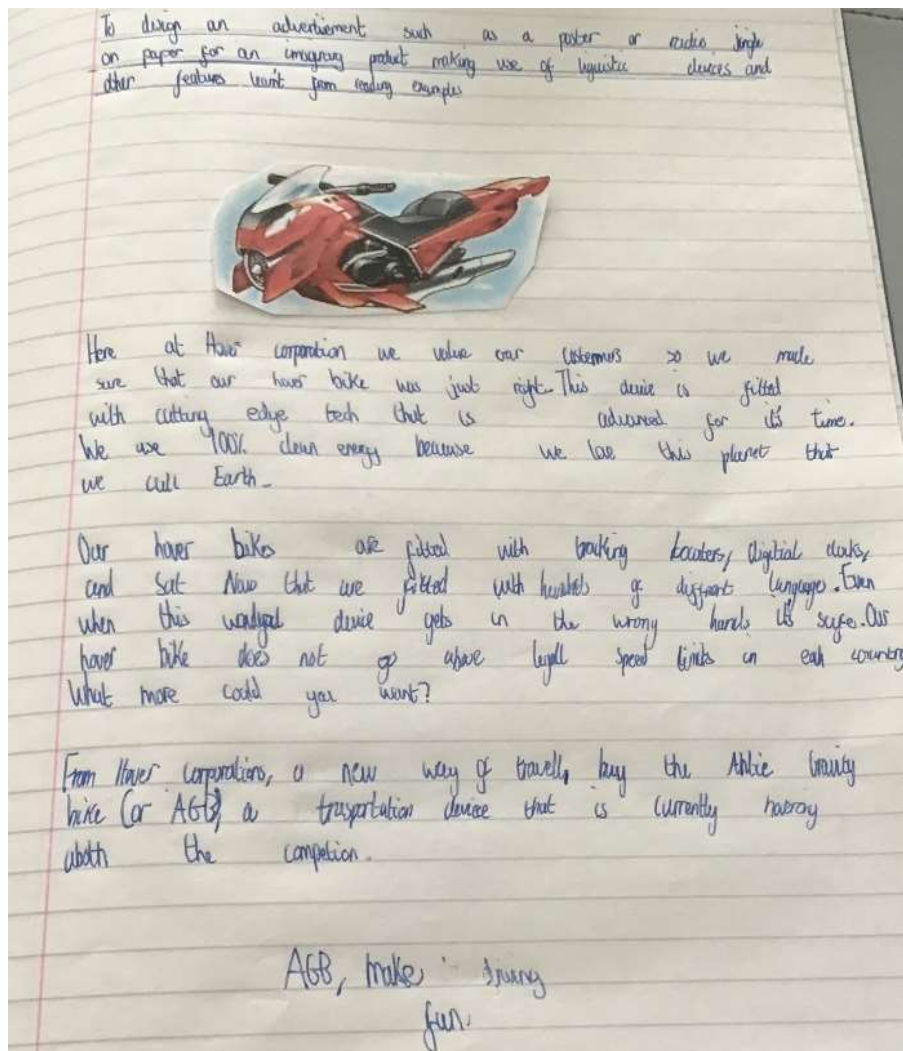 To design an advertisement such as a poster or radio jingle
on paper for an imaginary product making use of liguistic devices and
other features learnt from reading examples
Here at Hover corporation we value our customers so we made
sure that our hover bike was just right. This device is fitted
with cutting edge tech that is advanced for it's time.
We use 100% clean energy because we love this planet that
we call Earth.
Our hover bikes are fitted with tracking locaters, digitial clocks,
and Sat Navs that are fitted with of different language. Even
when this device gets in the wrong hands it's safe. Our
hover bike does not go above legall speed limits in each country
What more could you want?
From Hover corporations, a new way of travell, buy the
bike (or AGB) a trasportation device that is currently
the competion.
AGB, make fun.